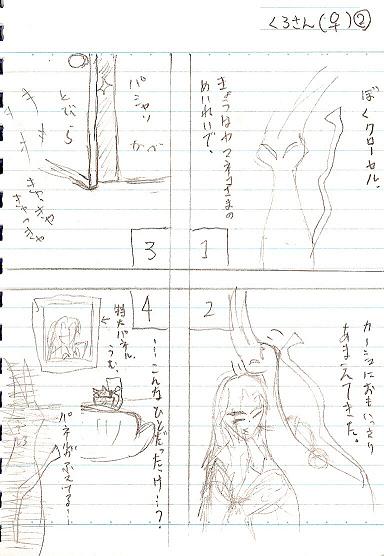 くろさん(♀)②
ぼくクローセル。
きょうはヤマネコさまの
めいれいで、
1
2
カーシュにおもいっきり
あまえてきた。
3
パシャッ
かべ
とびら
キャッキャ
キャッキャ
4
…こんなひとだったけ…?
特大パネル。
うむ。
パネルがふえてる…